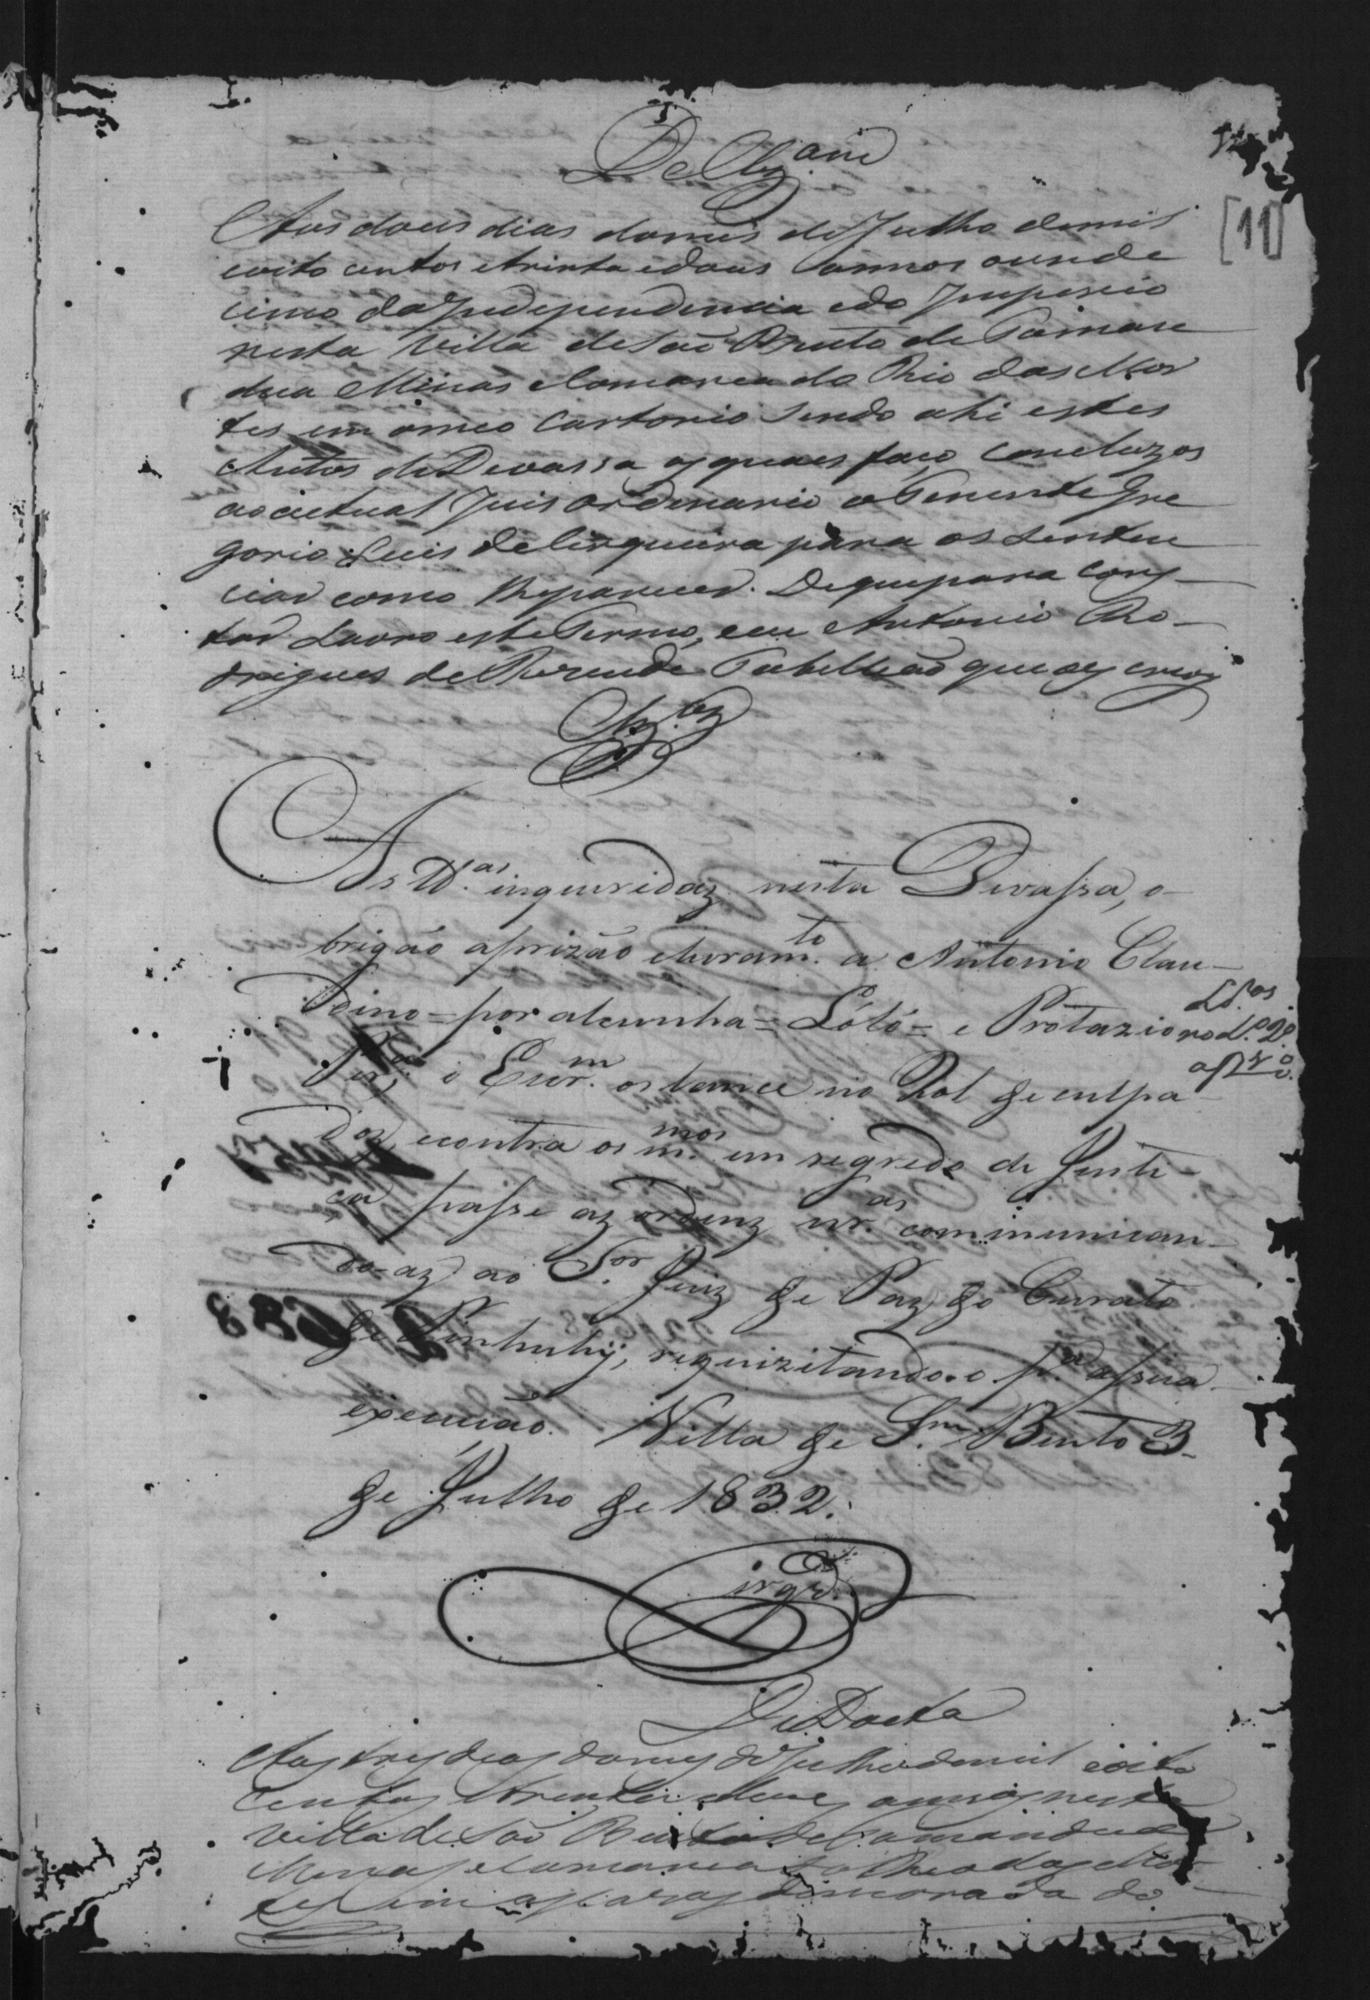 De Clz.am
[11]
Aos dous dias domes de Julho demil
coito centos etrinta edous annos ounde
cimo da Independencia edo Imperio
nesta Villa de São Bento de Taman
dua Minas eComarca do Rio das Mor
tes em omeo Cartorio sendo ahi estes
Autos de Devassa os quaes faço concluzos
ao actual Juis Ordenario o Tenente Gre
gorio Luis de Cirqueira para os senten
ciar como lhe parecer. De que para cons
tar Lavro este Termo, eeu Antonio Ro
drigues de Rezende Tabelleão que o escrevy
Clz.os
As tt.as inqueridaz nesta Devassa, o
brigão aprizão elivram.to a Antonio Clau
dino = por alcunha = Lóló = e Protazio
Per.a o Escr.m os lance no Rol de culpa
dos, econtra os m.mos em segredo de Justi
ça passe az ordenz nr.as comminican
do-az ao S.or Juiz de Paz do Curato
de Piuhuhy, requizitando-o p.a asua
execução. Villa de S.m Bento 3
de Julho de 1832.
Ld.os
no L.o 2.o
a f
De Dacta
Aos tres dias domes de Julho demil eoito
centos etrinta edous annos nesta
Villa de São Bento de Tamandua
Minas eComarca do Rio das Mor
tes em as cazas demorada do